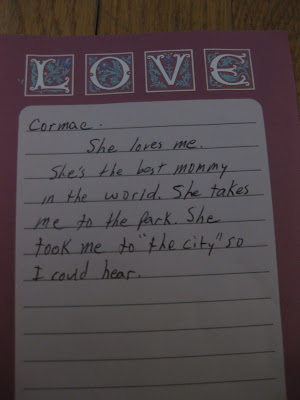 LOVE
Cormac.
She loves me.
She's the best mommy
in the world. She takes
me to the park. She
took me to "the city" so
I could hear.